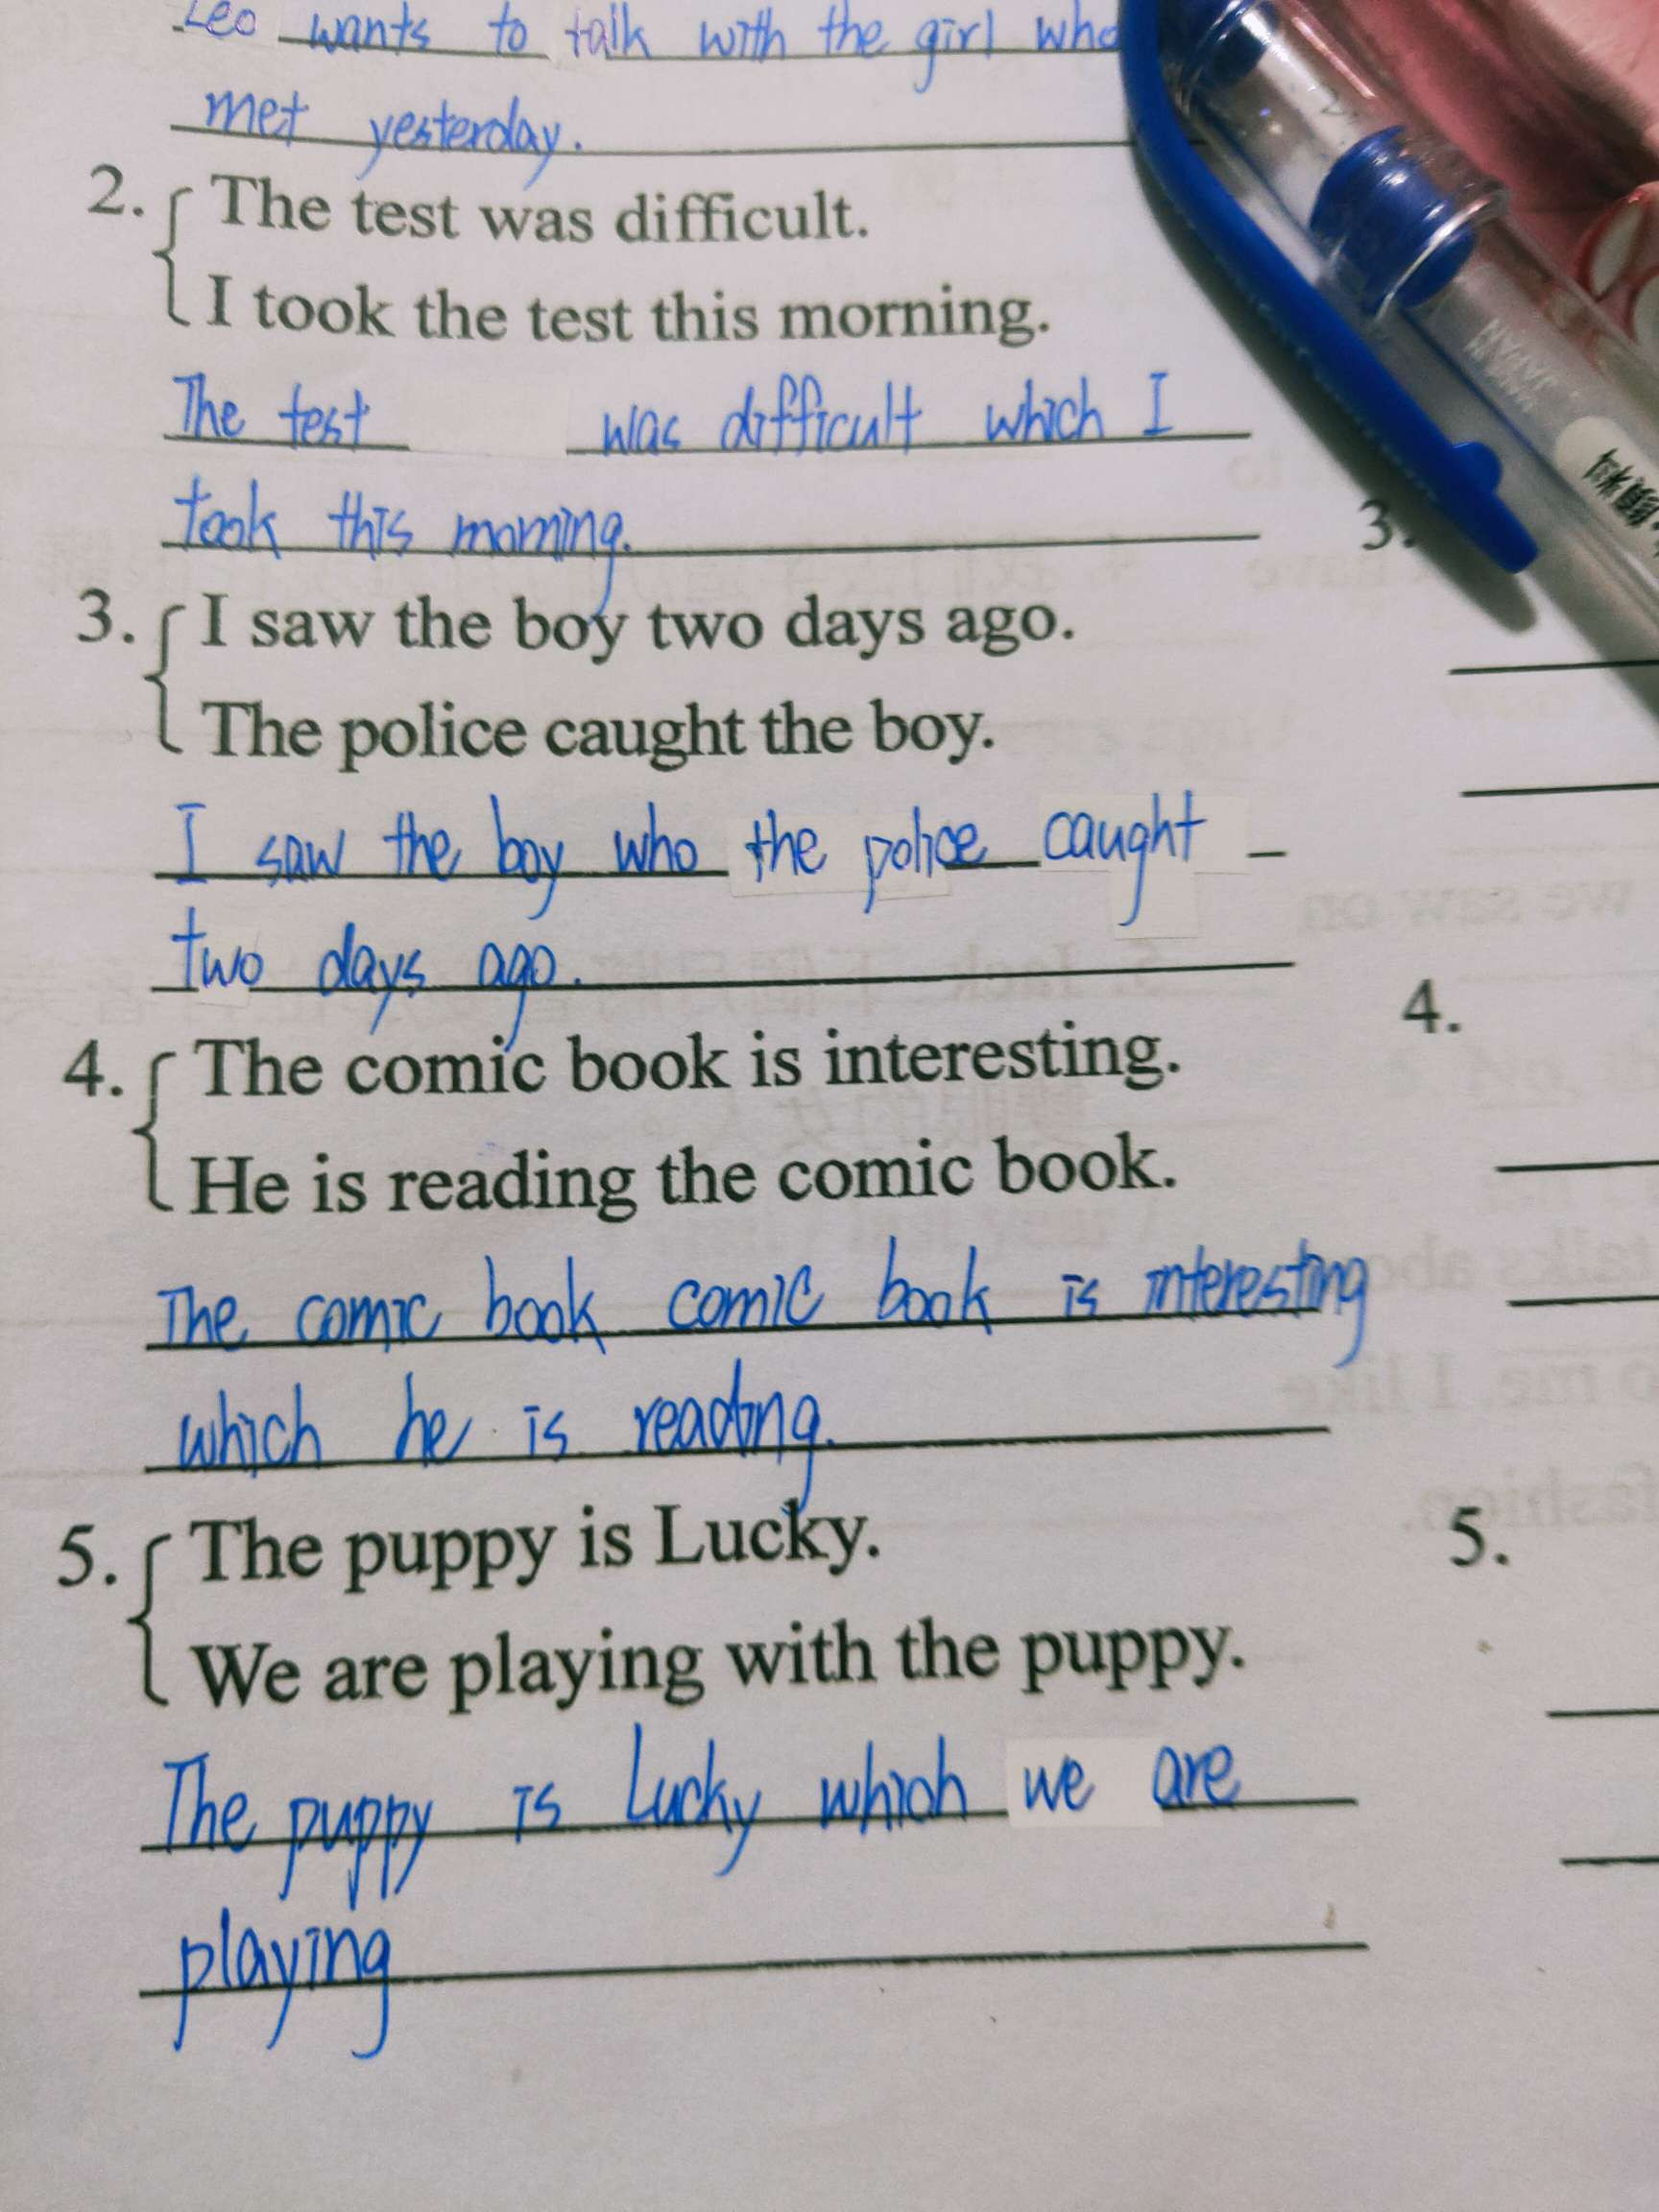 Leo wants to talk with the girl who
met yesterday.
2. The test was difficult.
I took the test this morning.
The test was difficult which I
took this morning.
3. I saw the boy two days ago.
The police caught the boy.
I saw the boy who the police caught
two days ago.
4. The comic book is interesting.
He is reading the comic book.
The comic book comic book is interesting
which he is reading.
5. The puppy is Lucky.
We are playing with the puppy.
The puppy is Lucky which we are
playing
3.
4.
5.